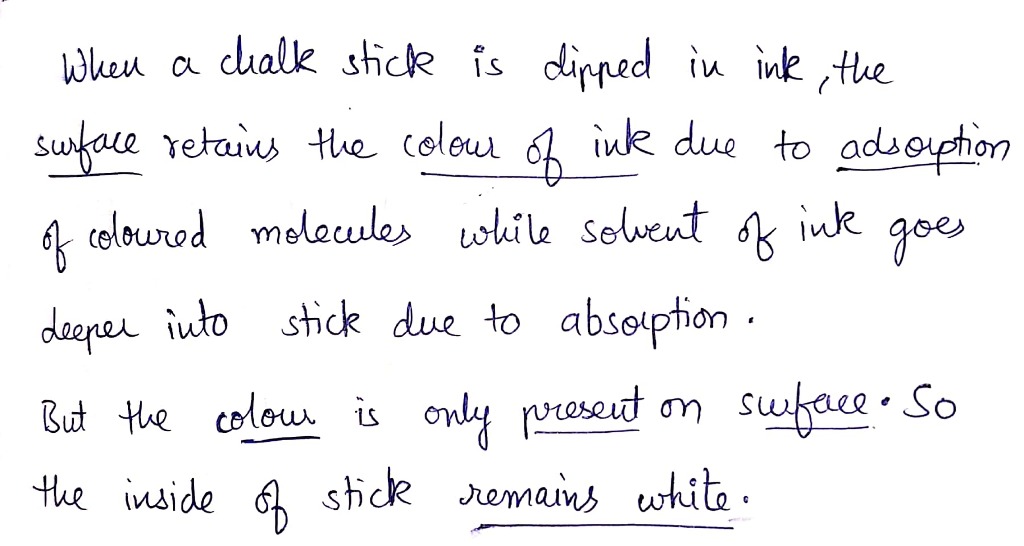 When a chalk stick is dipped in ink, the
surface retains the colour of ink due to adsorption
of coloured molecules while solvent of ink goes
deeper into stick due to absorption.
But the colour is only present on surface. So
the inside of stick remains white.